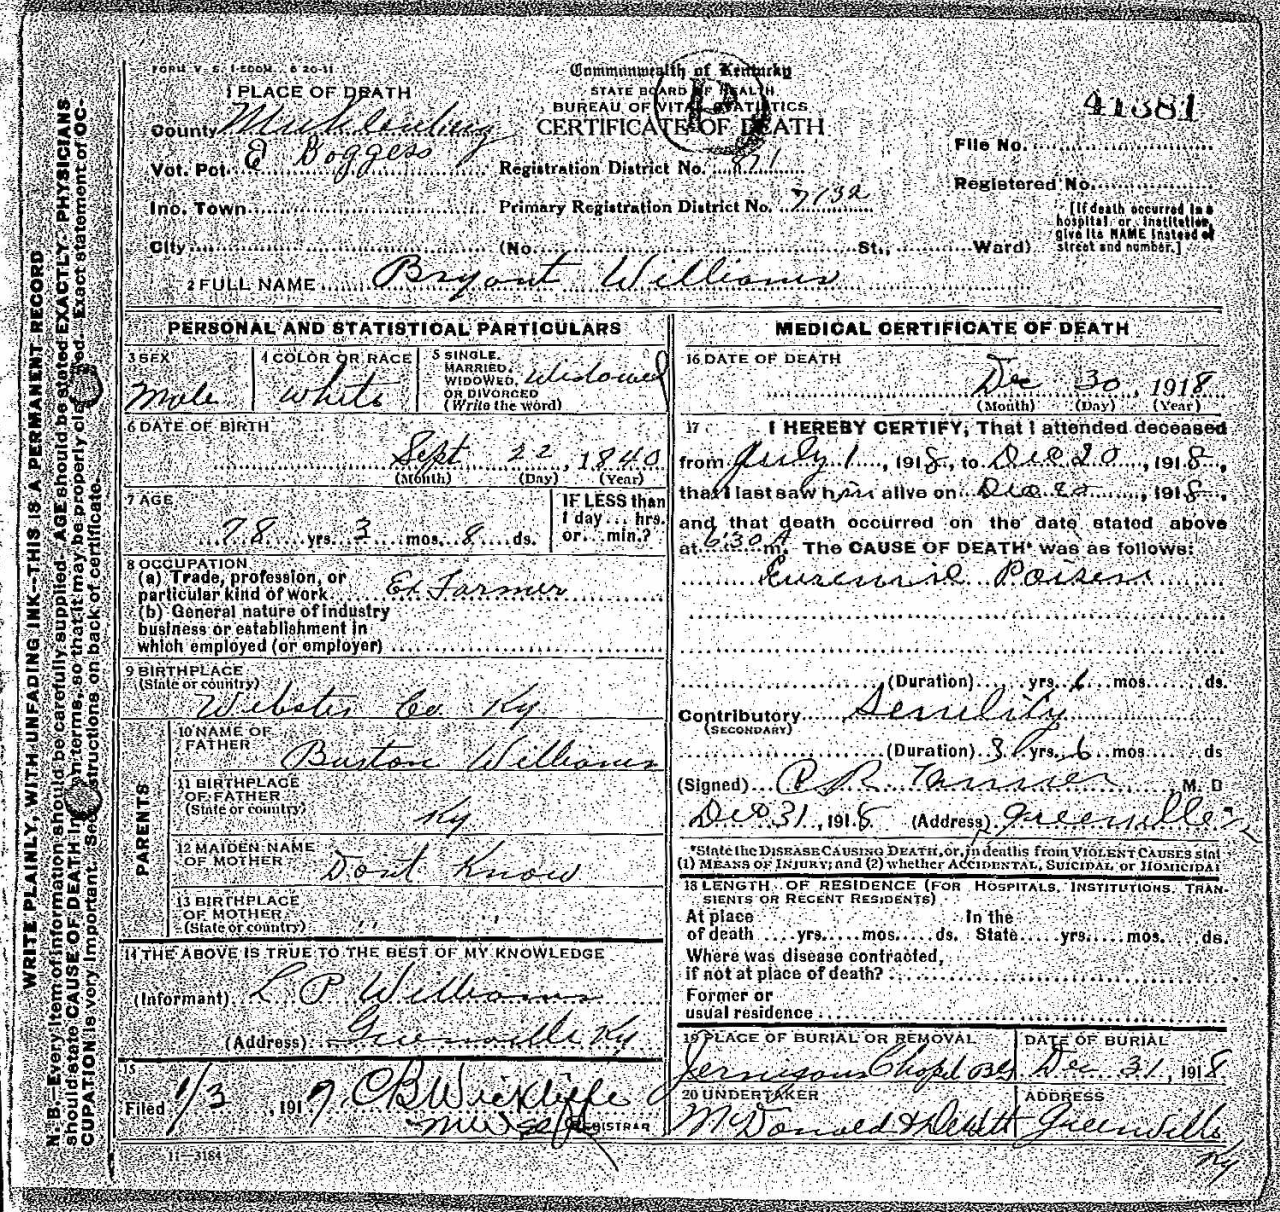 FORM V. S. 1-500M. 6-20-11
Commonwealth of Kentucky
STATE BOARD OF HEALTH
BUREAU OF VITAL STATISTICS
CERTIFICATE OF DEATH
41381
1 PLACE OF DEATH
County Muhlenburg
Vot. Pct. E Boggess
Registration District No. 871
File No.
Inc. Town
Primary Registration District No. 7132
Registered No.
City (No. St., Ward)
[If death occurred in a hospital or institution, give its NAME instead of street and number.]
2 FULL NAME Bryant Williams
PERSONAL AND STATISTICAL PARTICULARS
3 SEX
Male
4 COLOR OR RACE
White
5 SINGLE,
MARRIED,
WIDOWED,
OR DIVORCED
(Write the word)
Widowed
6 DATE OF BIRTH
Sept 22, 1840
(Month) (Day) (Year)
7 AGE
78 yrs. 3 mos. 8 ds.
IF LESS than
1 day... hrs.
or... min.?
8 OCCUPATION
(a) Trade, profession, or
particular kind of work Ex Farmer
(b) General nature of industry
business or establishment in
which employed (or employer)
9 BIRTHPLACE
(State or country)
Webster Co. Ky
PARENTS
10 NAME OF
FATHER
Burton Williams
11 BIRTHPLACE
OF FATHER
(State or country)
Ky
12 MAIDEN NAME
OF MOTHER
Dont Know
13 BIRTHPLACE
OF MOTHER
(State or country) " "
14 THE ABOVE IS TRUE TO THE BEST OF MY KNOWLEDGE
(Informant) L P Williams
(Address) Greenville Ky
15
Filed 1/3, 1919 C B Wickliffe
REGISTRAR
11-3184
MEDICAL CERTIFICATE OF DEATH
16 DATE OF DEATH
Dec 30, 1918
(Month) (Day) (Year)
17 I HEREBY CERTIFY, That I attended deceased
from July 1, 1918, to Dec 20, 1918,
that I last saw him alive on Dec 20, 1918,
and that death occurred on the date stated above
at 6:30 A m. The CAUSE OF DEATH* was as follows:
Poison
(Duration) yrs. 6 mos. ds.
Contributory Senility
(SECONDARY)
(Duration) 3 yrs. 6 mos. ds
(Signed) M. D
Dec 31, 1918 (Address) Greenville
*State the DISEASE CAUSING DEATH, or, in deaths from VIOLENT CAUSES stat
(1) MEANS OF INJURY; and (2) whether ACCIDENTAL, SUICIDAL or HOMICIDAL
18 LENGTH OF RESIDENCE (FOR HOSPITALS, INSTITUTIONS, TRAN-
SIENTS OR RECENT RESIDENTS)
At place In the
of death yrs. mos. ds. State yrs. mos. ds.
Where was disease contracted,
if not at place of death?
Former or
usual residence
19 PLACE OF BURIAL OR REMOVAL
Chapel
DATE OF BURIAL
Dec 31, 1918
20 UNDERTAKER
McDonald & DeWitt
ADDRESS
Greenville
Ky
WRITE PLAINLY, WITH UNFADING INK—THIS IS A PERMANENT RECORD
N. B.—Every item of information should be carefully supplied. AGE should be stated EXACTLY. PHYSICIANS
should state CAUSE OF DEATH in plain terms, so that it may be properly classified. Exact statement of OC-
CUPATION is very important. See instructions on back of certificate.